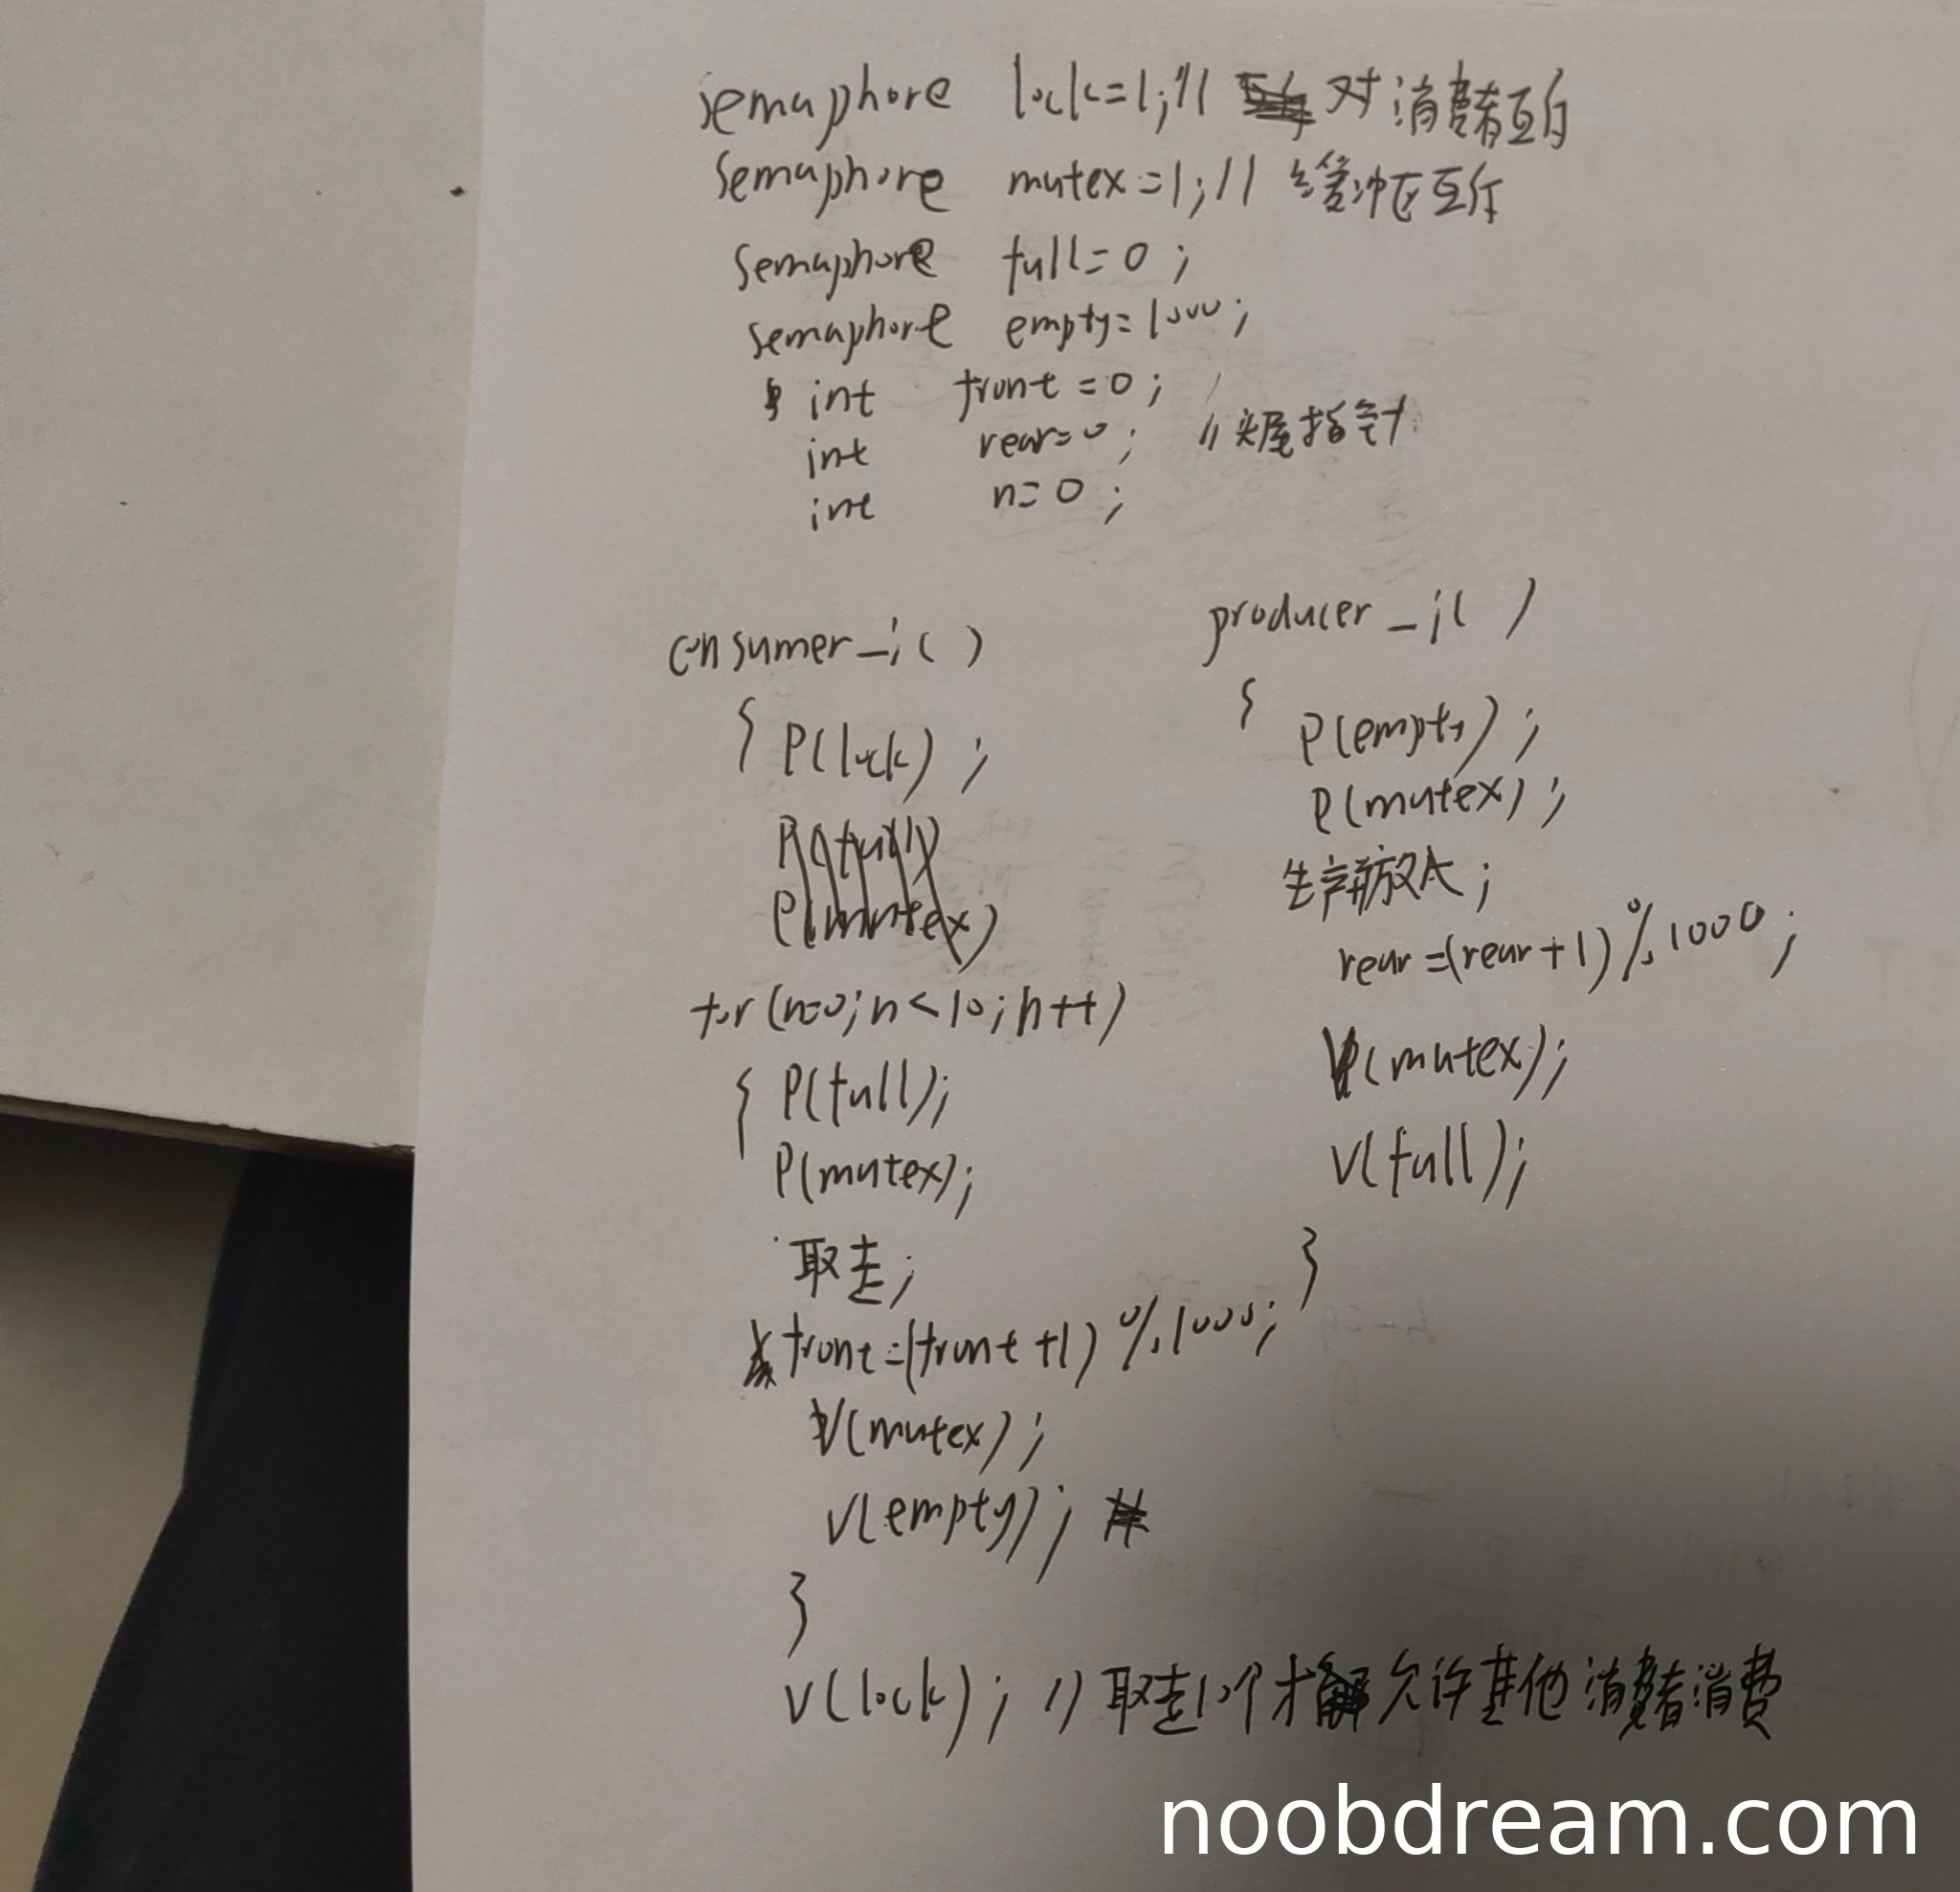 semaphore lock=1;// 对消费者互斥
semaphore mutex=1;// 缓冲区互斥
semaphore full=0;
semaphore empty=1000;
int front=0;
int rear=0; //头尾指针
int n=0;
consumer_i()
{ P(lock);
P(full)
P(mutex)
for(n=0;n<10;n++)
{ P(full);
P(mutex);
取走;
front=(front+1)%1000;
V(mutex);
V(empty);
}
V(lock); //取走10个才允许其他消费者消费
producer_i()
{ P(empty);
P(mutex);
生产并放入;
rear=(rear+1)%1000;
V(mutex);
V(full);
}
noobdream.com